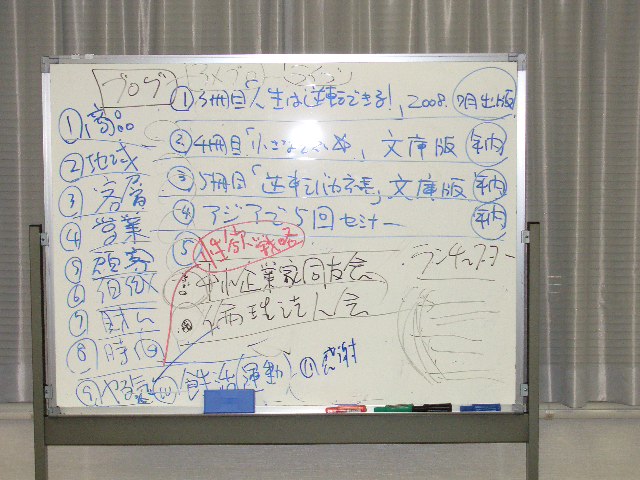 ブログ
①商品
②地域
③客層
④営業
⑤顧客
⑥組織
⑦財ム
⑧時
⑨やる気
①3冊目「人生は逆転できる!」2008. 7月出版
②4冊目「小さな 文庫版 年内
③5冊目「逆転 文庫版 年内
④アジアで5回セミナー 年内
⑤
性欲戦略
中小企業家同友会
倫理法人会
ランチェスター
⑩食生活 運動
⑪感謝